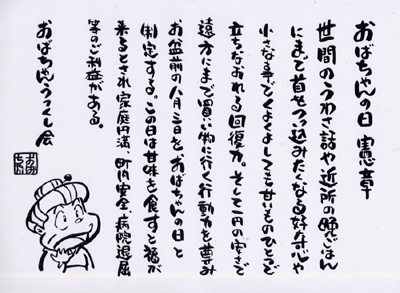 おばちゃんの日 憲章
世間のうわさ話や近所の晩ごはん
にまで首をつっ込みたくなる好奇心や
小さな事でくよくよしても甘いものひとつで
立ちなおれる回復力。そして一円の安さで
遠方にまで買い物に行く行動力を尊み
お盆前の八月三日をおばちゃんの日と
制定する。この日は甘味を食すと福が
来るとされ家庭円満、町内安全、病院退屈
等のご利益がある。
おばちゃんうつくし会